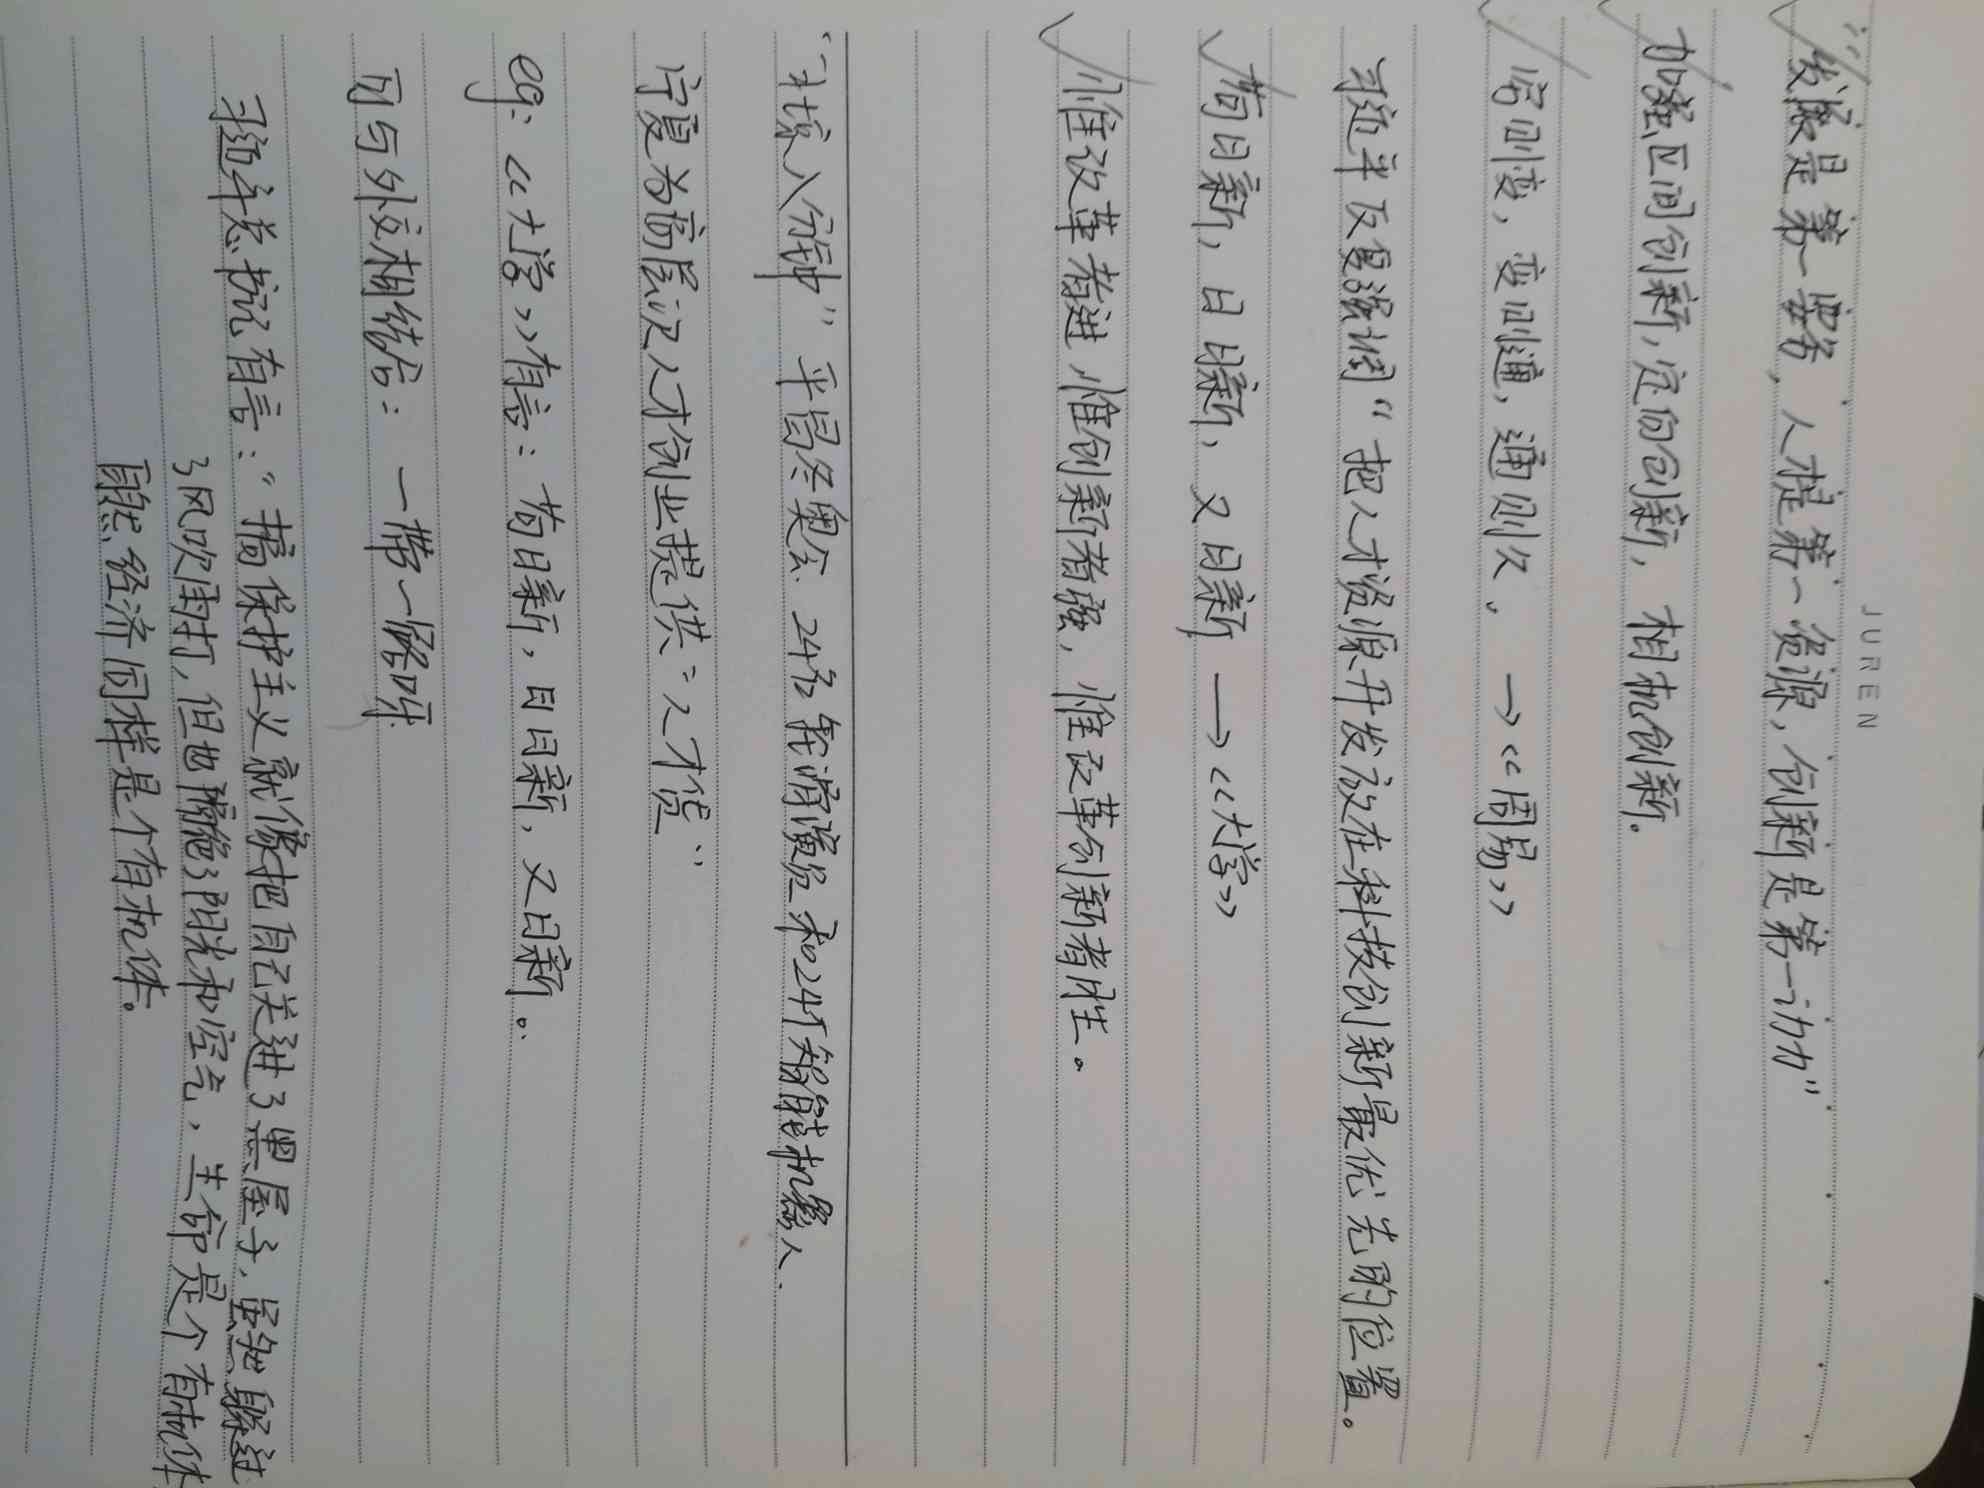 JUREN
“发展是第一要务，人才是第一资源，创新是第一动力”
加强区间创新，定向创新，相机创新.
穷则变，变则通，通则久. →《周易》
习近平反复强调“把人才资源开发放在科技创新最优先的位置。
苟日新，日日新，又日新 →《大学》
惟改革者进，惟创新者强，惟改革创新者胜。
“北京八分钟” 平昌冬奥会 24名轮滑演员和24个智能机器人.
宁夏为高层次人才创业提供“人才贷”
eg:《大学》有言：苟日新，日日新，又日新。
可与外交相结合：一带一路
习近平总书记有言：“搞保护主义就像把自己关进了黑屋子，虽能躲过
了风吹雨打，但也隔绝了阳光和空气，生命是个有机体
自然经济同样是个有机体。